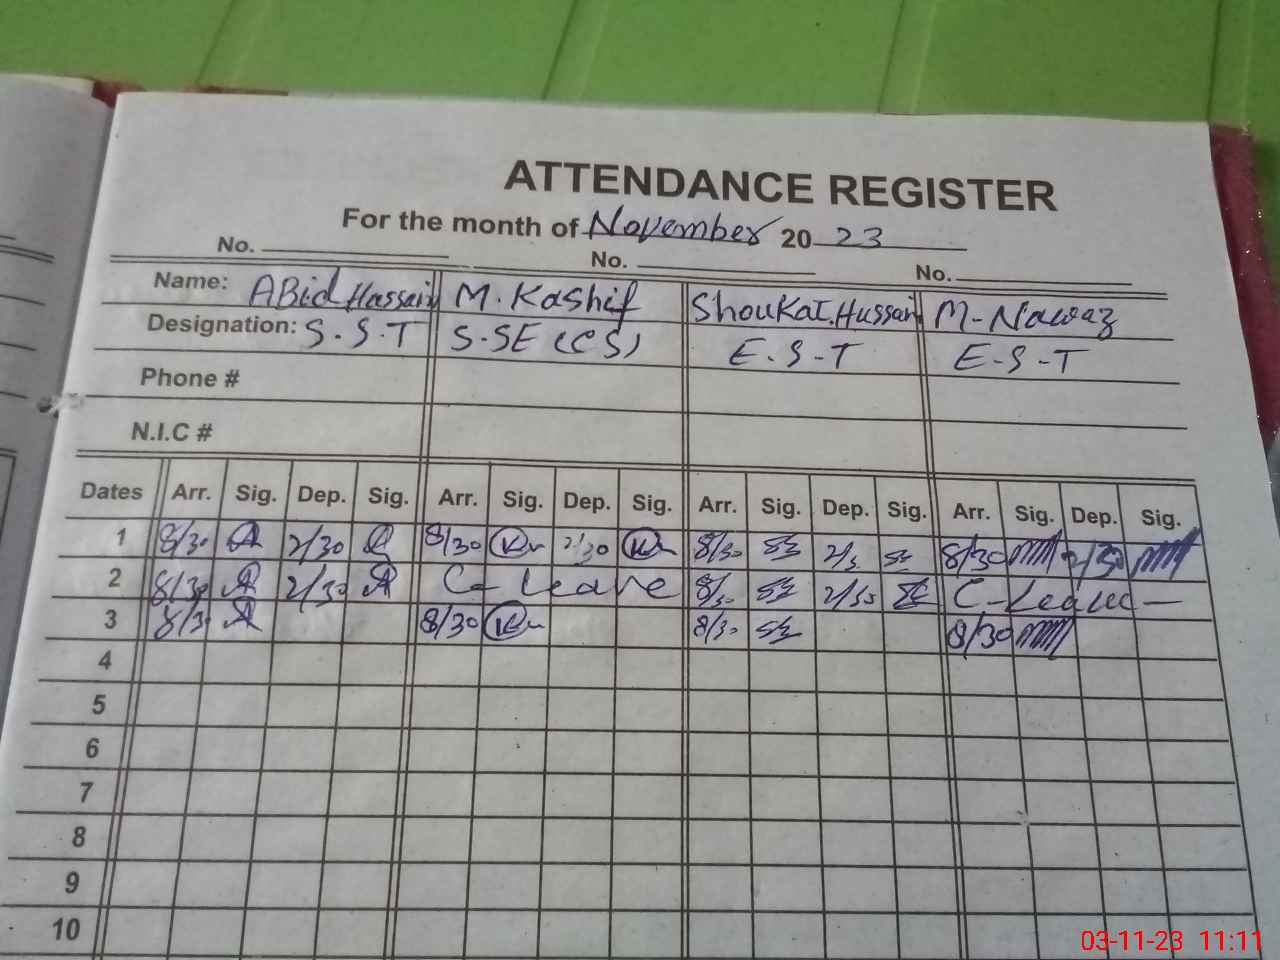 ATTENDANCE REGISTER
For the month of November 2023
No. No. No.
Name: ABid Hassain M. Kashif Shoukat.Hussain M-Nawaz
Designation: S.S.T S.SE (CS) E.S-T E-S-T
Phone #
N.I.C #
Dates Arr. Sig. Dep. Sig. Arr. Sig. Dep. Sig. Arr. Sig. Dep. Sig. Arr. Sig. Dep. Sig.
1 8/30 2/30 8/30 2/30 8/30 2/3 8/30 2/30
2 8/30 2/30 C-Leave 8/3 2/30 C-Leave-
3 8/3 8/30 8/3 8/30
4
5
6
7
8
9
10
03-11-23 11:11